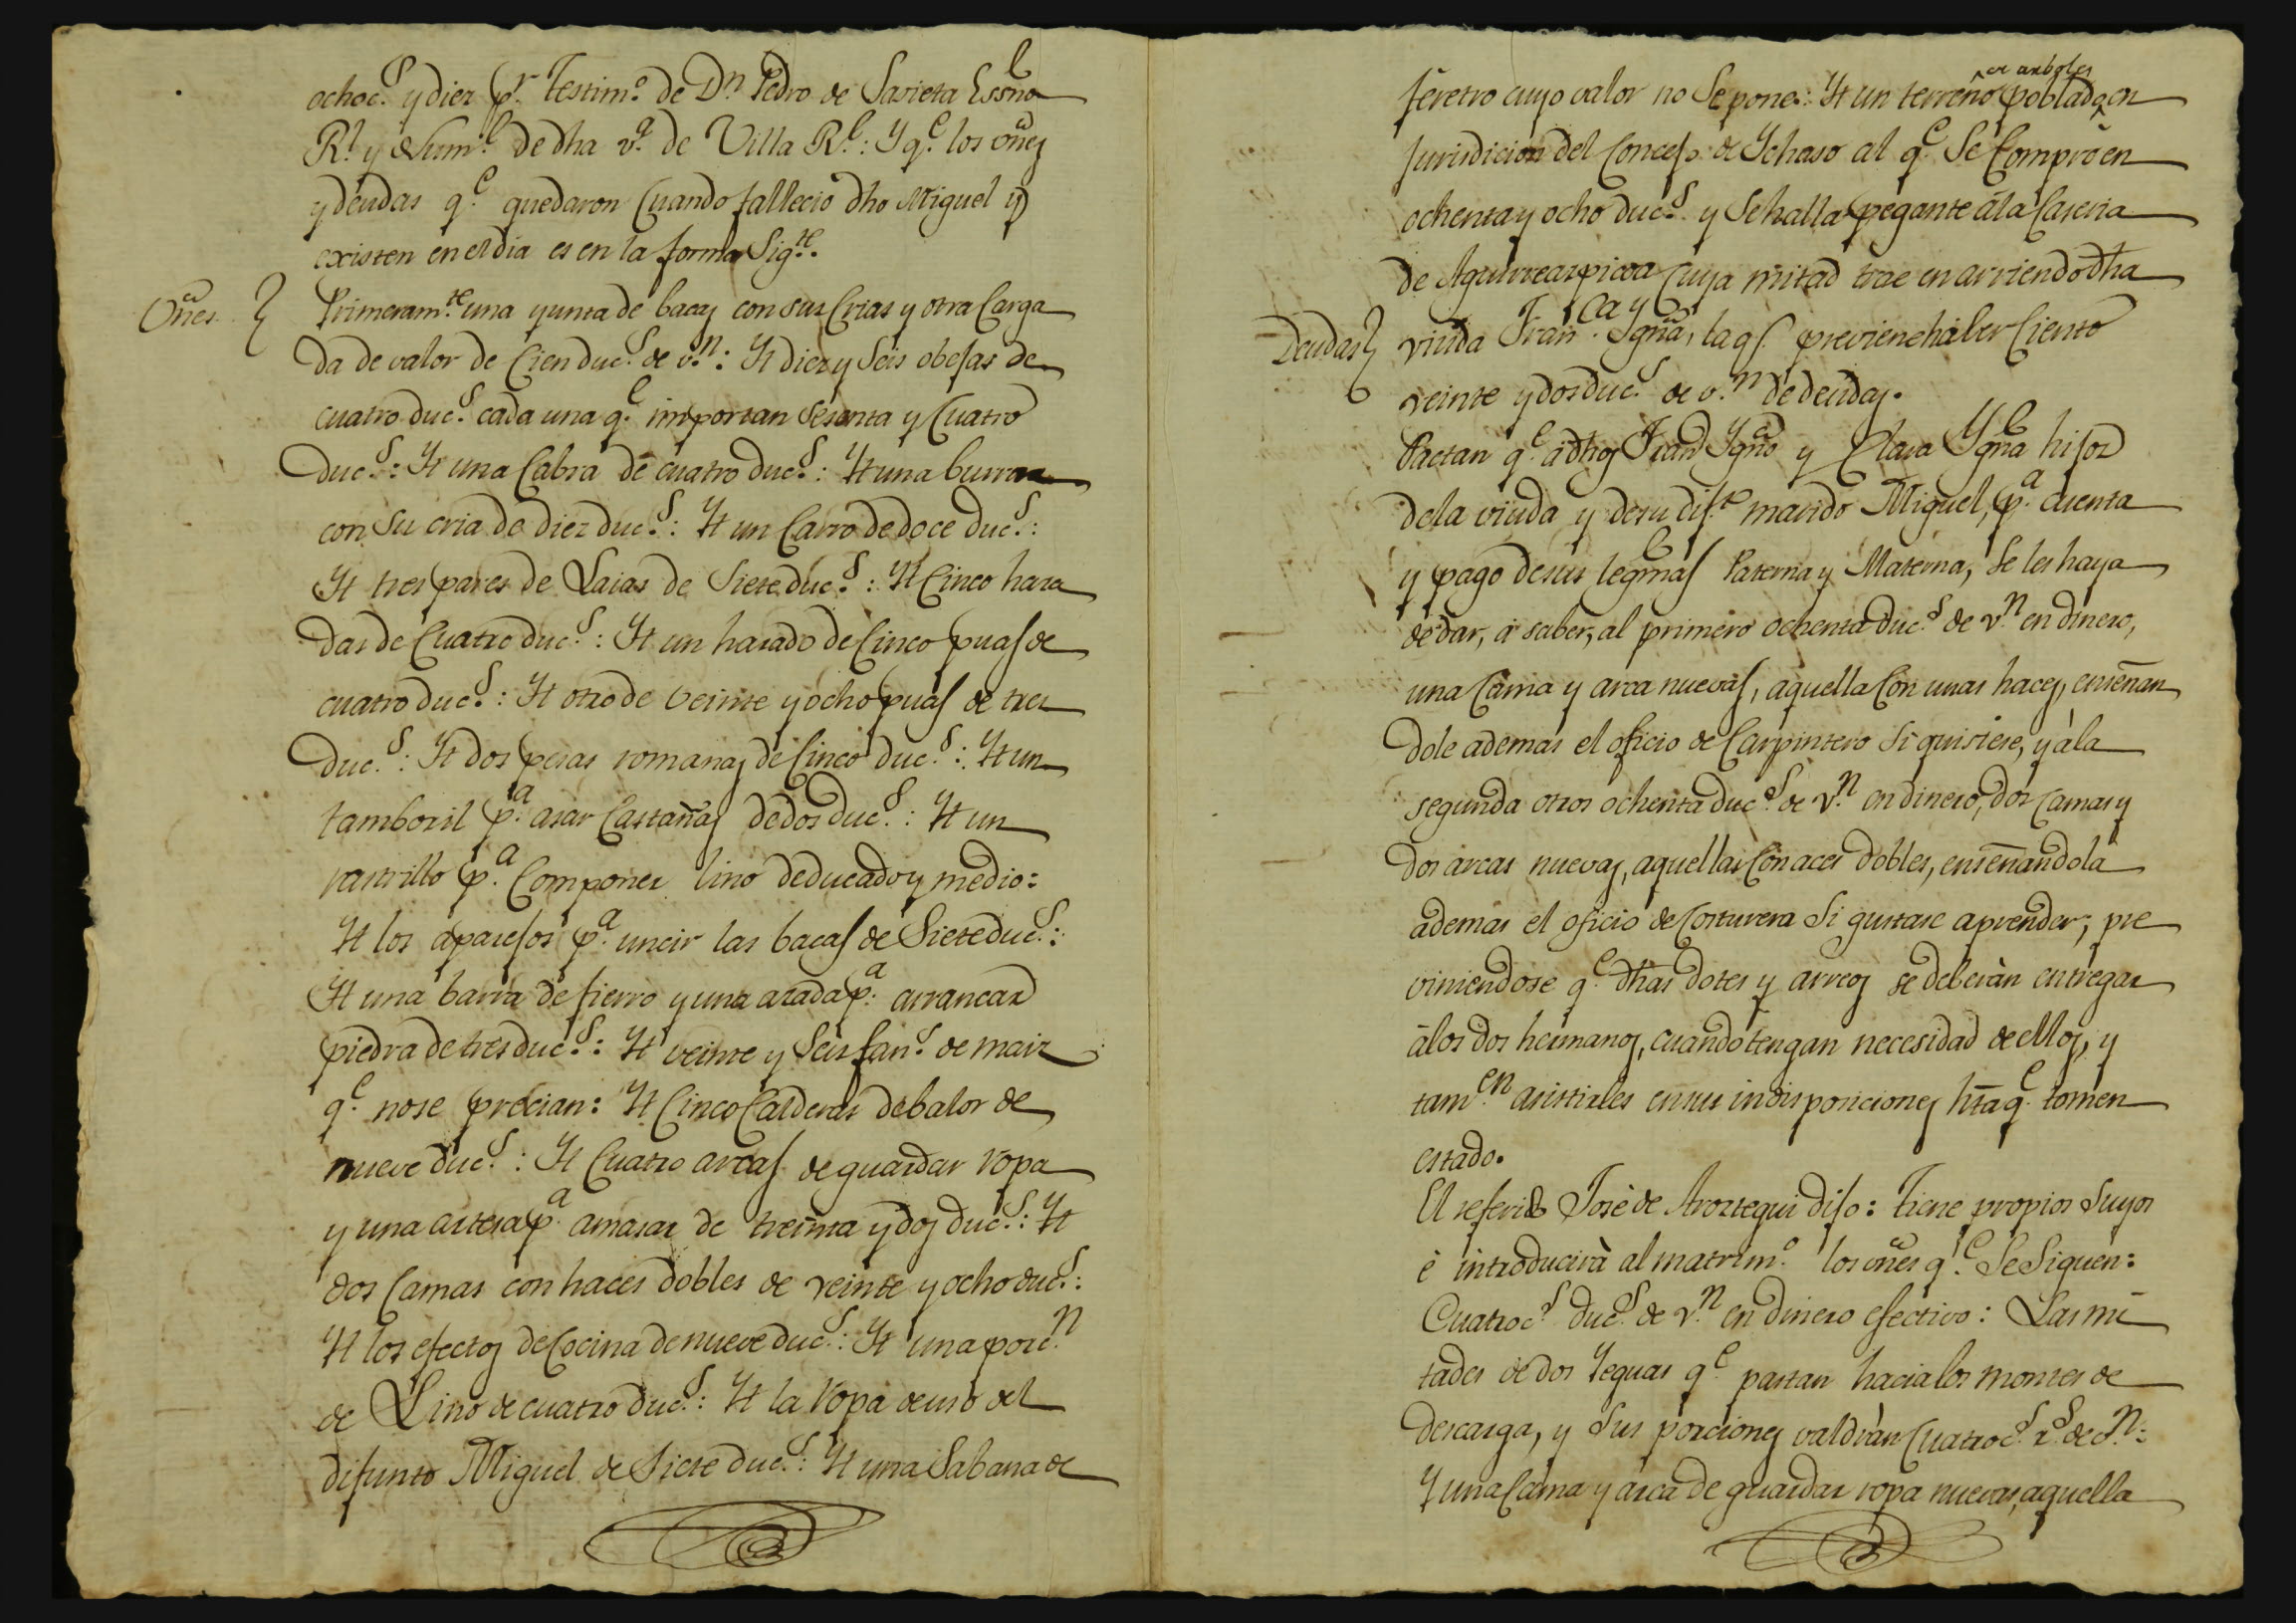 ochoc.s y diez p.r Testim.o de D.n Pedro de Sarieta Essno
R.l y Num.l de dha v.a de Villa R.l: Y q.e los vnes
y deudas q.e quedaron Cuando fallecio dho Miguel y
existen en el dia es en la forma Sig.te.
Vnes
Primeram.te una yunta de bacas con sus Crias y otra Carga
da de valor de Cien duc.s de v.n: Yt diez y Seis obejas de
cuatro duc.s cada una q.e importan sesenta y Cuatro
duc.s: Yt una Cabra de cuatro duc.s: Yt una burra
con su cria de diez duc.s: Yt un Carro de doce duc.s:
Yt tres pares de Laias de Siete duc.s: Yt Cinco haza
das de Cuatro duc.s: Yt un harado de Cinco puas de
cuatro duc.s: Yt otro de veinte y ocho puas de tres
duc.s: Yt dos pesas romanas de Cinco duc.s: Yt un
tamboril p.a asar Castañas de dos duc.s: Yt un
rastrillo p.a Componer lino de ducado y medio:
Yt los aparejos p.a uncir las bacas de Siete duc.s:
Yt una barra de fierro y una azada p.a arrancar
piedra de tres duc.s: Yt veinte y Seis fan.s de maiz
q.e no se precian: Yt Cinco Calderas de balor de
nueve duc.s: Yt Cuatro arcas de guardar ropa
y una artesa p.a amasar de treinta y dos duc.s: Yt
dos Camas con haces dobles de veinte y ocho duc.s:
Yt los efectos de Cocina de nueve duc.s: Yt una porc.n
de Lino de cuatro duc.s: Yt la ropa de uso del
difunto Miguel de Siete duc.s: Yt una Sabana de
feretro cuyo valor no Se pone: Yt un terreno poblado en
de arboles
Jurisdicion del Concejo de Ychaso al q.e Se Compró en
ochenta y ocho duc.s y Se halla pegante á la Caseria
de Aguirrezpicoa Cuya mitad trae en arriendo dha
Deudas
viuda Fran.ca Ygna, la q.l previene haber Ciento
veinte y dos duc.s de v.n de deudas.
Pactan q.e á dhos Fran Ygno y Clara Ygna hijos
de la viuda y de su dif.te marido Miguel, p.a cuenta
y pago de sus legmas Paterna y Materna, Se les haya
de dar, á saber, al primero ochenta duc.s de v.n en dinero,
una Cama y arca nuevas, aquella Con unas haces, enseñan
dole ademas el oficio de Carpintero Si quisiere, y á la
segunda otros ochenta duc.s de v.n en dinero, dos Camas y
dos arcas nuevas, aquellas Con aces dobles, enseñandola
ademas el oficio de Costurera Si gustase aprender; pre
viniendose q.e dhas dotes y arreos se deberàn entregar
á los dos hermanos, cuando tengan necesidad de ellos, y
tam.en asistirles en sus indisposiciones hta q.e tomen
estado.
El referido José de Aroztegui dijo: tiene propios Suyos
é introducirà al matrim.o los vnes q.e Se Siguen:
Cuatroc.s duc.s de v.n en dinero efectivo: Las mi
tades de dos Yeguas q.e pastan hacia los montes de
descarga, y Sus porciones valdràn Cuatroc.s r.s de v.n:
Y una Cama y arca de guardar ropa nuevas, aquella